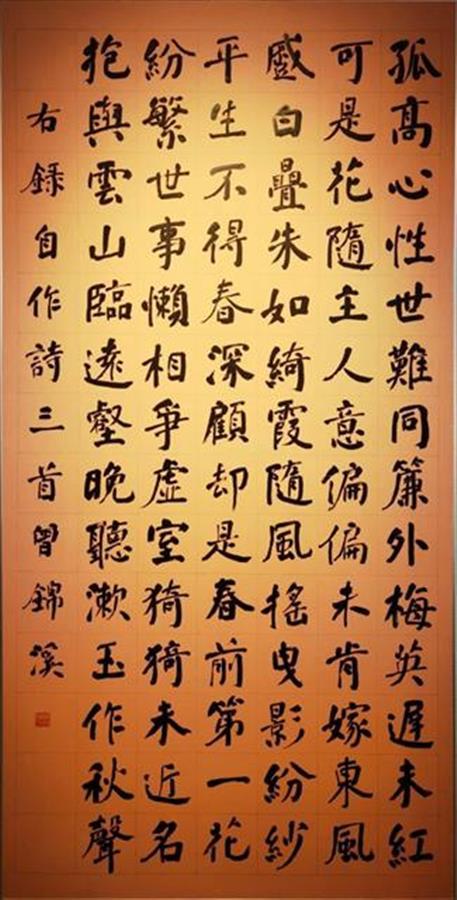 孤髙心性世難同簾外梅英遲未紅
可是花隨主人意偏偏未肯嫁東風
白疊朱如綺霞隨風搖曳影紛紗
平生不得春深顧却是春前第一花
紛繁世事懶相爭虛室猗猗未近名
抱與雲山臨遠壑晚聽漱玉作秋聲
右録自作詩三首曾錦溪